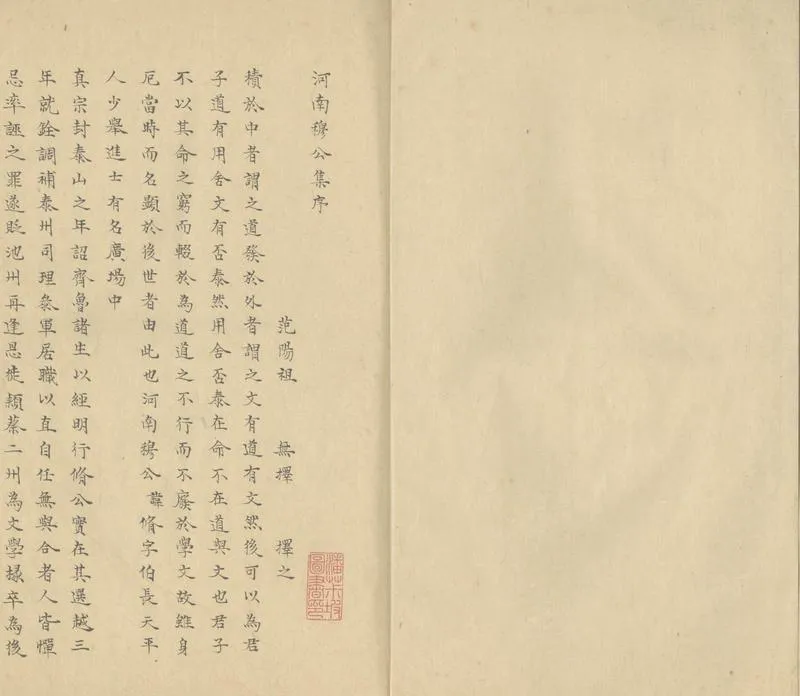 河南穆公集序
范陽祖 無擇 擇之
積於中者謂之道發於外者謂之文有道有文然後可以為君
子道有用舍文有否泰然用舍否泰在命不在道與文也君子
不以其命之窮而輟於為道道之不行而不廢於學文故雖身
厄當時而名顯於後世者由此也河南穆公諱脩字伯長天平
人少舉進士有名廣場中
真宗封泰山之年詔齊魯諸生以經明行脩公實在其選越三
年就銓調補泰州司理叅軍居職以直自任無與合者人皆憚
忌率誣之罪遂貶池州再逢恩徙潁蔡二州為文學掾卒為後